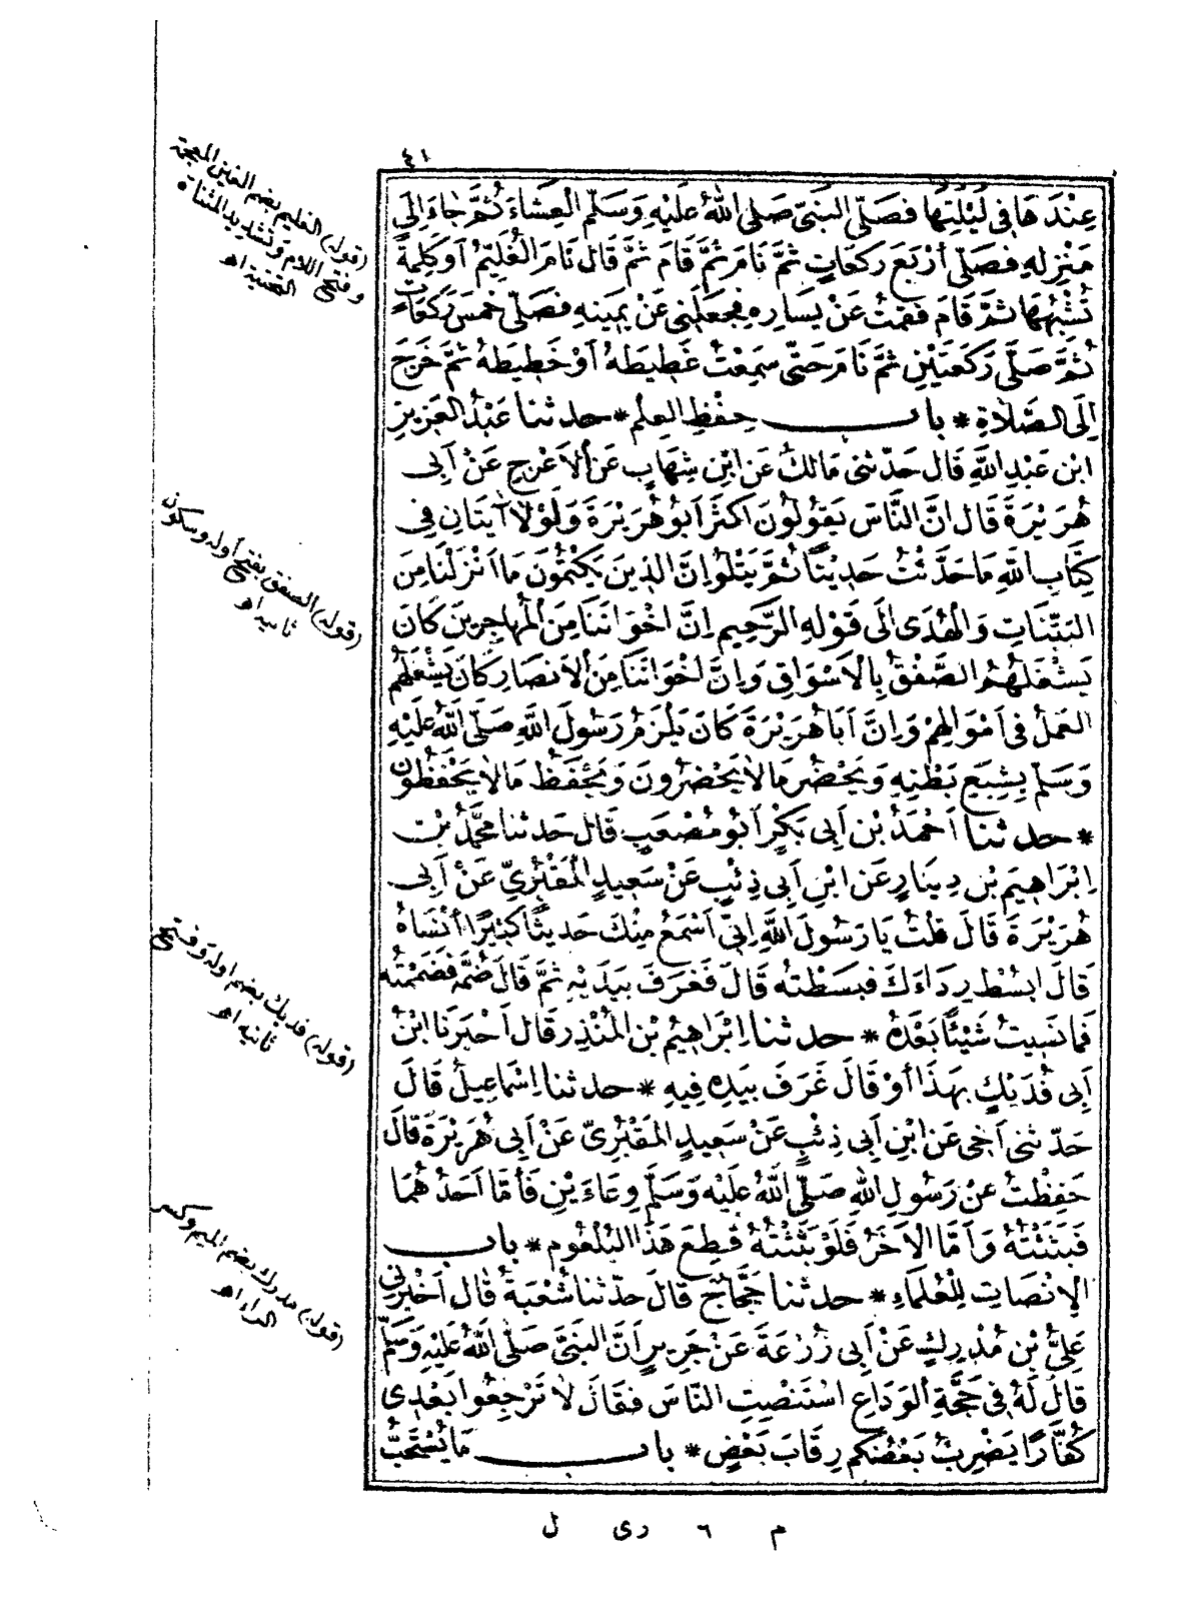 ٤١
عِنْدَهَا فِي لَيْلَتِهَا فَصَلَّى النَّبِيُّ صَلَّى اللَّهُ عَلَيْهِ وَسَلَّمَ الْعِشَاءَ ثُمَّ جَاءَ إِلَى
مَنْزِلِهِ فَصَلَّى أَرْبَعَ رَكَعَاتٍ ثُمَّ نَامَ ثُمَّ قَامَ ثُمَّ قَالَ نَامَ الْغُلَيِّمُ أَوْ كَلِمَةً
تُشْبِهُهَا ثُمَّ قَامَ فَقُمْتُ عَنْ يَسَارِهِ فَجَعَلَنِي عَنْ يَمِينِهِ فَصَلَّى خَمْسَ رَكَعَاتٍ
ثُمَّ صَلَّى رَكْعَتَيْنِ ثُمَّ نَامَ حَتَّى سَمِعْتُ غَطِيطَهُ أَوْ خَطِيطَهُ ثُمَّ خَرَجَ
إِلَى الصَّلَاةِ * باب حِفْظِ الْعِلْمِ * حدثنا عَبْدُ الْعَزِيزِ
ابْنُ عَبْدِ اللَّهِ قَالَ حَدَّثَنِي مَالِكٌ عَنِ ابْنِ شِهَابٍ عَنِ الْأَعْرَجِ عَنْ أَبِي
هُرَيْرَةَ قَالَ إِنَّ النَّاسَ يَقُولُونَ أَكْثَرَ أَبُو هُرَيْرَةَ وَلَوْلَا آيَتَانِ فِي
كِتَابِ اللَّهِ مَا حَدَّثْتُ حَدِيثًا ثُمَّ يَتْلُو إِنَّ الَّذِينَ يَكْتُمُونَ مَا أَنْزَلْنَا مِنَ
الْبَيِّنَاتِ وَالْهُدَى إِلَى قَوْلِهِ الرَّحِيمِ إِنَّ إِخْوَانَنَا مِنَ الْمُهَاجِرِينَ كَانَ
يَشْغَلُهُمُ الصَّفْقُ بِالْأَسْوَاقِ وَإِنَّ إِخْوَانَنَا مِنَ الْأَنْصَارِ كَانَ يَشْغَلُهُمُ
الْعَمَلُ فِي أَمْوَالِهِمْ وَإِنَّ أَبَا هُرَيْرَةَ كَانَ يَلْزَمُ رَسُولَ اللَّهِ صَلَّى اللَّهُ عَلَيْهِ
وَسَلَّمَ بِشِبَعِ بَطْنِهِ وَيَحْضُرُ مَا لَا يَحْضُرُونَ وَيَحْفَظُ مَا لَا يَحْفَظُونَ
* حدثنا أَحْمَدُ بْنُ أَبِي بَكْرٍ أَبُو مُصْعَبٍ قَالَ حَدثنا مُحَمَّدُ بْنُ
إِبْرَاهِيمَ بْنِ دِينَارٍ عَنِ ابْنِ أَبِي ذِئْبٍ عَنْ سَعِيدٍ الْمَقْبُرِيِّ عَنْ أَبِي
هُرَيْرَةَ قَالَ قُلْتُ يَا رَسُولَ اللَّهِ إِنِّي أَسْمَعُ مِنْكَ حَدِيثًا كَثِيرًا أَنْسَاهُ
قَالَ ابْسُطْ رِدَاءَكَ فَبَسَطْتُهُ قَالَ فَغَرَفَ بِيَدَيْهِ ثُمَّ قَالَ ضُمَّهُ فَضَمَمْتُهُ
فَمَا نَسِيتُ شَيْئًا بَعْدَهُ * حدثنا إِبْرَاهِيمُ بْنُ الْمُنْذِرِ قَالَ أَخْبَرَنَا ابْنُ
أَبِي فُدَيْكٍ بِهَذَا أَوْ قَالَ غَرَفَ بِيَدِهِ فِيهِ * حدثنا إِسْمَاعِيلُ قَالَ
حَدَّثَنِي أَخِي عَنِ ابْنِ أَبِي ذِئْبٍ عَنْ سَعِيدٍ الْمَقْبُرِيِّ عَنْ أَبِي هُرَيْرَةَ قَالَ
حَفِظْتُ عَنْ رَسُولِ اللَّهِ صَلَّى اللَّهُ عَلَيْهِ وَسَلَّمَ وِعَاءَيْنِ فَأَمَّا أَحَدُهُمَا
فَبَثَثْتُهُ وَأَمَّا الْآخَرُ فَلَوْ بَثَثْتُهُ قُطِعَ هَذَا الْبُلْعُومُ * باب
الْإِنْصَاتِ لِلْعُلَمَاءِ * حدثنا حَجَّاجٌ قَالَ حَدَّثَنَا شُعْبَةُ قَالَ أَخْبَرَنِي
عَلِيُّ بْنُ مُدْرِكٍ عَنْ أَبِي زُرْعَةَ عَنْ جَرِيرٍ أَنَّ النَّبِيَّ صَلَّى اللَّهُ عَلَيْهِ وَسَلَّمَ
قَالَ لَهُ فِي حَجَّةِ الْوَدَاعِ اسْتَنْصِتِ النَّاسَ فَقَالَ لَا تَرْجِعُوا بَعْدِي
كُفَّارًا يَضْرِبُ بَعْضُكُمْ رِقَابَ بَعْضٍ * باب مَا يُسْتَحَبُّ
(قوله) الغليم بضم الغين المعجمة
وفتح اللام وتشديد المثناة
التحتية اه
(قوله) الصفق بفتح أوله وسكون
ثانيه اه
(قوله) فديك بضم اوله وفتح
ثانيه اه
(قوله) مدرك بضم الميم وكسر
الراء اه
م ٦ رى ل